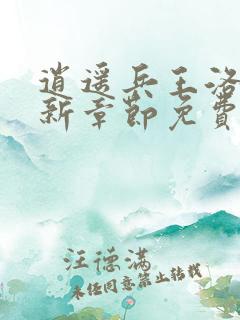 逍遥兵王洛
新章節免費
汪德满
未经同意禁止转载